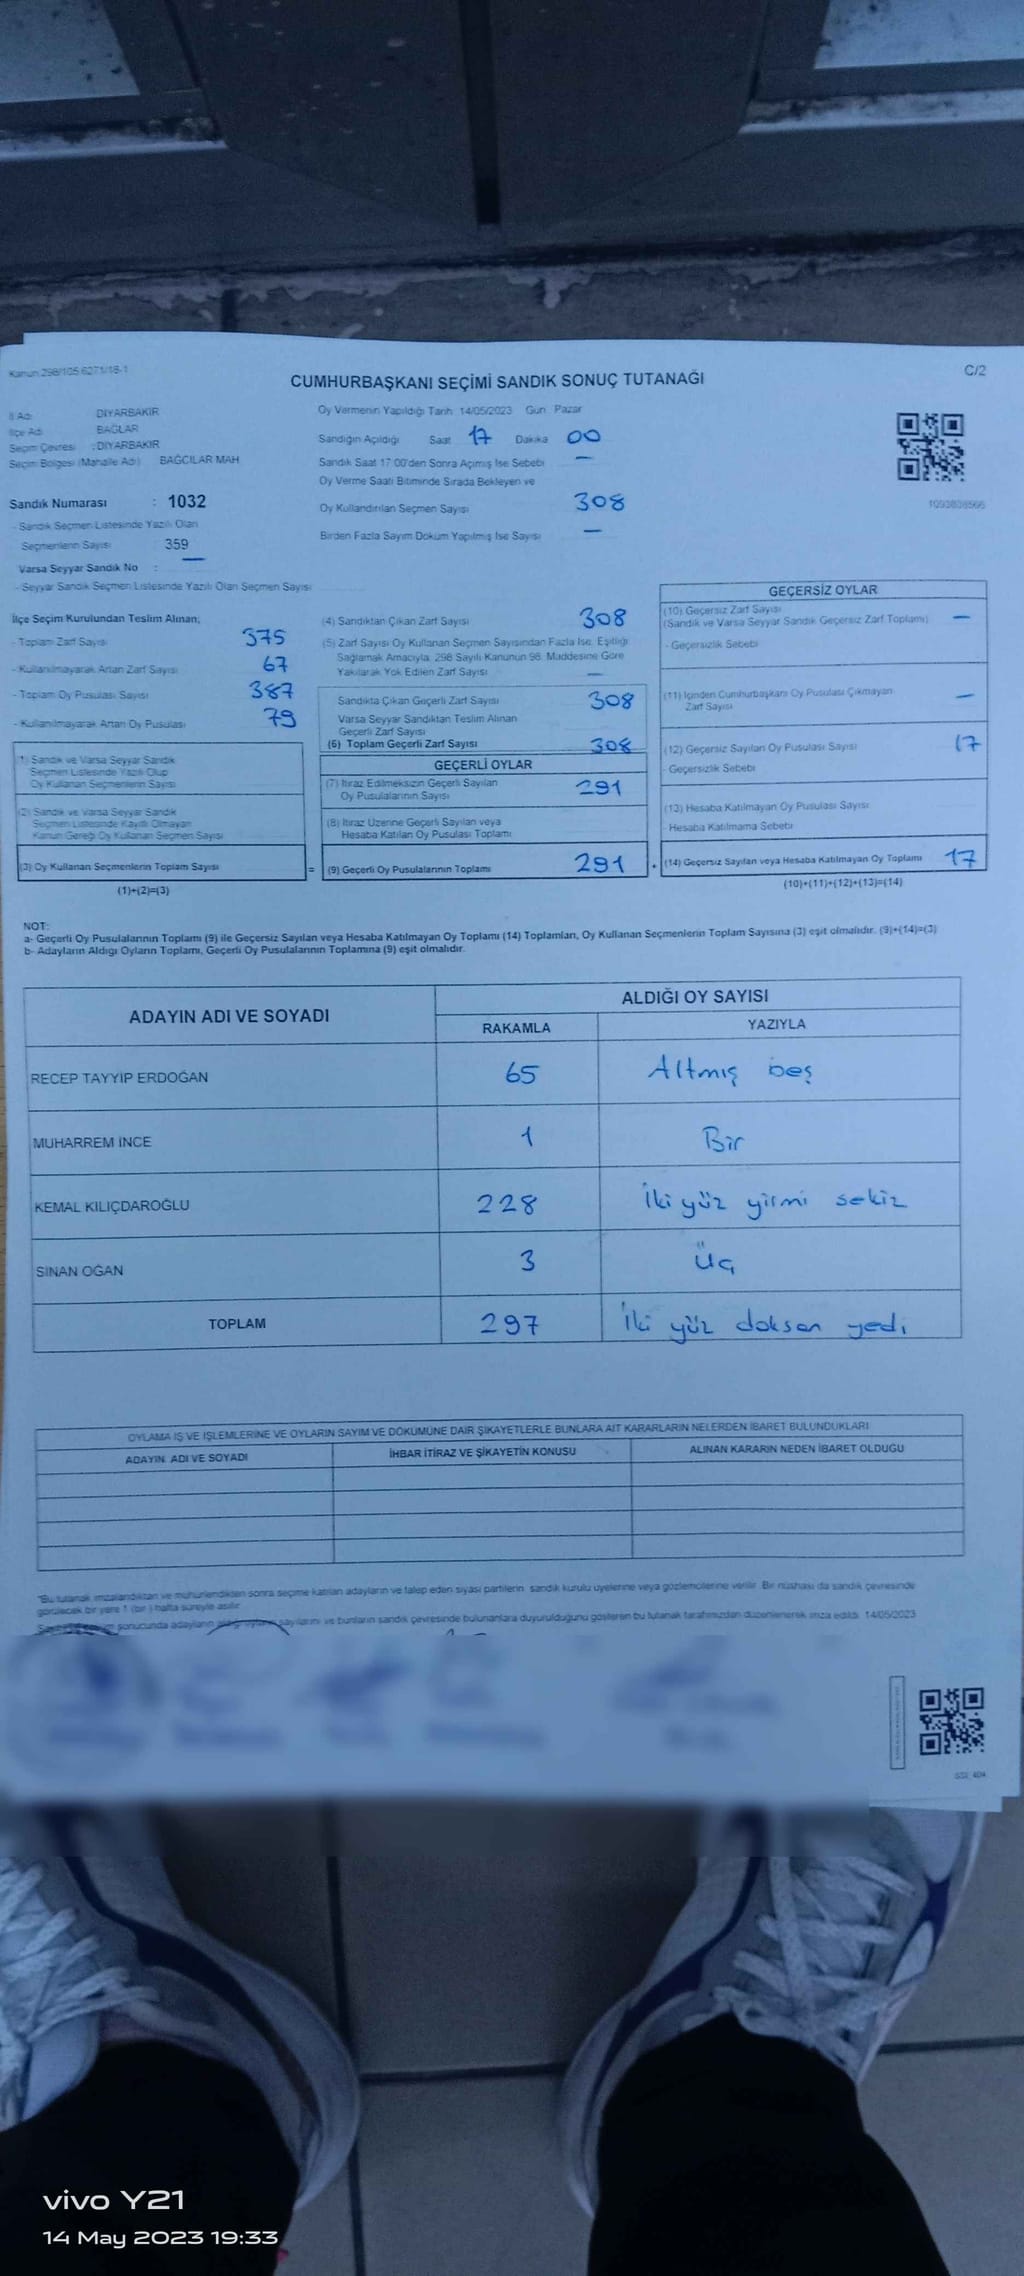 Kanun 298/105 6271/18-1
C/2
CUMHURBAŞKANI SEÇİMİ SANDIK SONUÇ TUTANAĞI
İl Adı DİYARBAKIR
İlçe Adı BAĞLAR
Seçim Çevresi : DİYARBAKIR
Seçim Bölgesi (Mahalle Adı) BAĞCILAR MAH
Sandık Numarası : 1032
- Sandık Seçmen Listesinde Yazılı Olan
Seçmenlerin Sayısı 359
Varsa Seyyar Sandık No : —
- Seyyar Sandık Seçmen Listesinde Yazılı Olan Seçmen Sayısı
Oy Vermenin Yapıldığı Tarih 14/05/2023 Gün Pazar
Sandığın Açıldığı Saat 17 Dakika 00
Sandık Saat 17:00'den Sonra Açılmış İse Sebebi —
Oy Verme Saati Bitiminde Sırada Bekleyen ve
Oy Kullandırılan Seçmen Sayısı 308
Birden Fazla Sayım Döküm Yapılmış İse Sayısı —
1093838566
İlçe Seçim Kurulundan Teslim Alınan;
- Toplam Zarf Sayısı 375
- Kullanılmayarak Artan Zarf Sayısı 67
- Toplam Oy Pusulası Sayısı 387
- Kullanılmayarak Artan Oy Pusulası 79
(1) Sandık ve Varsa Seyyar Sandık
Seçmen Listesinde Yazılı Olup
Oy Kullanan Seçmenlerin Sayısı
(2) Sandık ve Varsa Seyyar Sandık
Seçmen Listesinde Kayıtlı Olmayan
Kanun Gereği Oy Kullanan Seçmen Sayısı
(3) Oy Kullanan Seçmenlerin Toplam Sayısı
(1)+(2)=(3)
(4) Sandıktan Çıkan Zarf Sayısı 308
(5) Zarf Sayısı Oy Kullanan Seçmen Sayısından Fazla İse, Eşitliği
Sağlamak Amacıyla, 298 Sayılı Kanunun 98. Maddesine Göre
Yakılarak Yok Edilen Zarf Sayısı —
Sandıkta Çıkan Geçerli Zarf Sayısı 308
Varsa Seyyar Sandıktan Teslim Alınan
Geçerli Zarf Sayısı
(6) Toplam Geçerli Zarf Sayısı 308
GEÇERLİ OYLAR
(7) İtiraz Edilmeksizin Geçerli Sayılan
Oy Pusulalarının Sayısı 291
(8) İtiraz Üzerine Geçerli Sayılan veya
Hesaba Katılan Oy Pusulası Toplamı
= (9) Geçerli Oy Pusulalarının Toplamı 291
GEÇERSİZ OYLAR
(10) Geçersiz Zarf Sayısı
(Sandık ve Varsa Seyyar Sandık Geçersiz Zarf Toplamı) —
- Geçersizlik Sebebi
(11) İçinden Cumhurbaşkanı Oy Pusulası Çıkmayan
Zarf Sayısı —
(12) Geçersiz Sayılan Oy Pusulası Sayısı 17
- Geçersizlik Sebebi
(13) Hesaba Katılmayan Oy Pusulası Sayısı
- Hesaba Katılmama Sebebi
+ (14) Geçersiz Sayılan veya Hesaba Katılmayan Oy Toplamı 17
(10)+(11)+(12)+(13)=(14)
NOT:
a- Geçerli Oy Pusulalarının Toplamı (9) ile Geçersiz Sayılan veya Hesaba Katılmayan Oy Toplamı (14) Toplamları, Oy Kullanan Seçmenlerin Toplam Sayısına (3) eşit olmalıdır. (9)+(14)=(3)
b- Adayların Aldığı Oyların Toplamı, Geçerli Oy Pusulalarının Toplamına (9) eşit olmalıdır.
ADAYIN ADI VE SOYADI ALDIĞI OY SAYISI
RAKAMLA YAZIYLA
RECEP TAYYİP ERDOĞAN 65 Altmış beş
MUHARREM İNCE 1 Bir
KEMAL KILIÇDAROĞLU 228 İki yüz yirmi sekiz
SİNAN OĞAN 3 Üç
TOPLAM 297 İki yüz doksan yedi
OYLAMA İŞ VE İŞLEMLERİNE VE OYLARIN SAYIM VE DÖKÜMÜNE DAİR ŞİKAYETLERLE BUNLARA AİT KARARLARIN NELERDEN İBARET BULUNDUKLARI
ADAYIN ADI VE SOYADI İHBAR İTİRAZ VE ŞİKAYETİN KONUSU ALINAN KARARIN NEDEN İBARET OLDUĞU
"Bu tutanak imzalandıktan ve mühürlendikten sonra seçime katılan adayların ve talep eden siyasi partilerin sandık kurulu üyelerine veya gözlemcilerine verilir. Bir nüshası da sandık çevresinde
görülecek bir yere 1 (bir) hafta süreyle asılır.
sonucunda adayların sayılarını ve bunların sandık çevresinde bulunanlara duyurulduğunu gösteren bu tutanak tarafımızdan düzenlenerek imza edildi. 14/05/2023
vivo Y21
14 May 2023 19:33